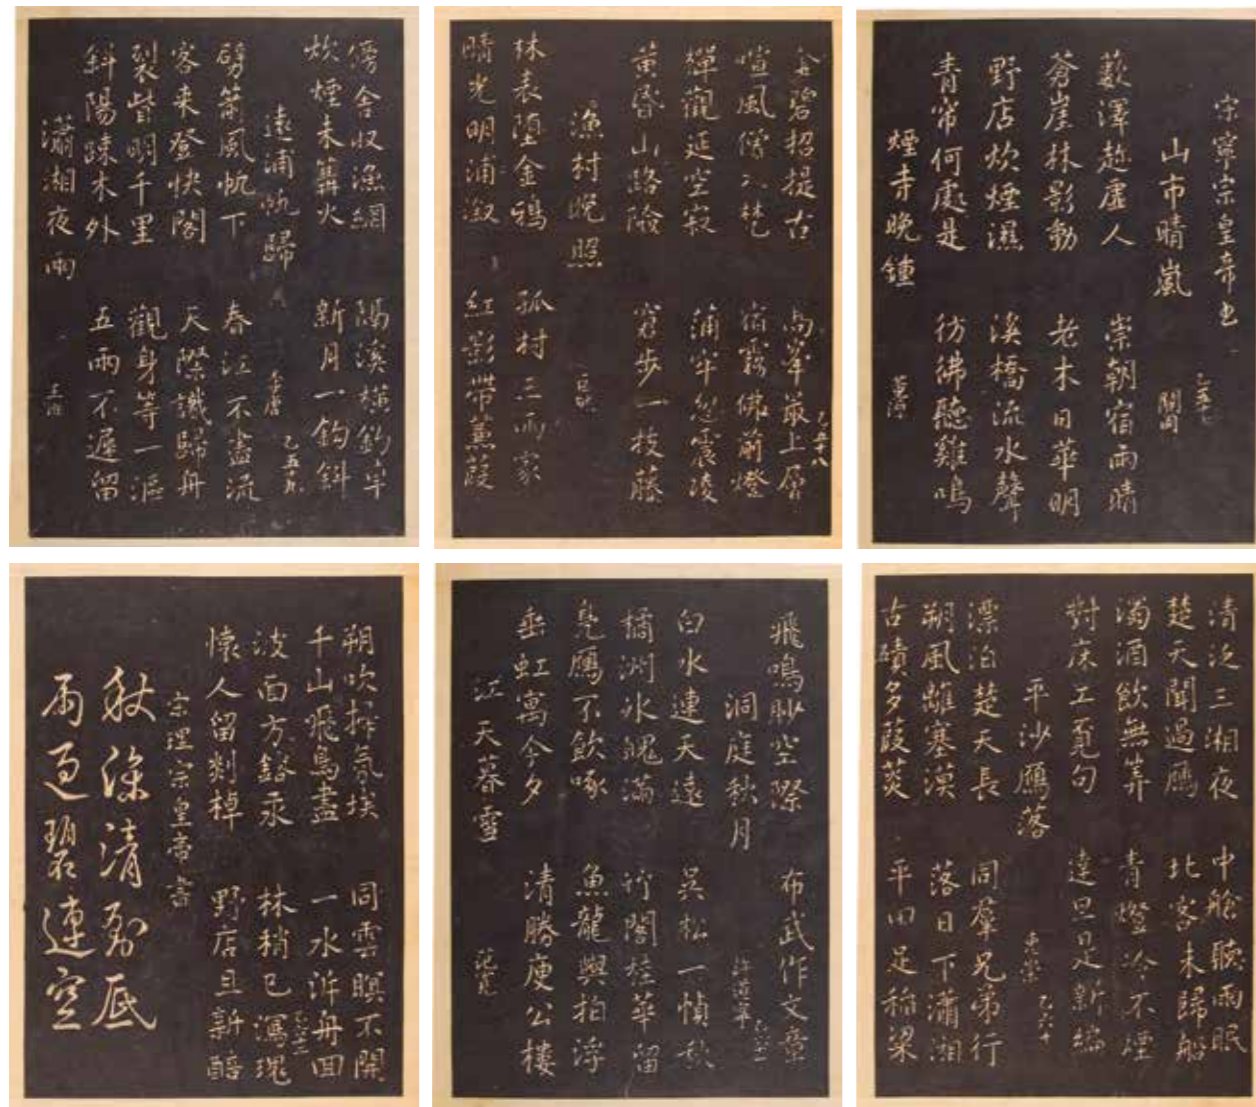 宗寧宗皇帝書
山市晴嵐 關同
藪澤趁虛人 崇朝宿雨晴
蒼崖林影動 老木日華明
野店炊煙濕 溪橋流水聲
青帘何處是 彷彿聽雞鳴
煙寺晚鍾
金碧招提古 高峯最上層
喧風僧入梵 宿霧佛前燈
觀延空寂 蒲牢忽震凌
黃昏山路險 窮步一枝藤
漁村晚照
林表墮金鴉 孤村三兩家
晴光明浦溆 紅影帶蒹葭
傍舍收漁網 隔溪橫釣車
炊煙未篝火 新月一鈎斜
遠浦帆歸 李唐
劈箭風帆下 春江不盡流
客來登快閣 天際識歸舟
裂眥明千里 觀身等一漚
斜陽疎木外 五兩不遲留
瀟湘夜雨 王洽
清泛三湘夜 中艙聽雨眠
楚天聞過鴈 北客未歸船
濁酒飲無算 青燈冷不煙
對床工覓句 達旦足新編
平沙鴈落 惠崇
漂泊楚天長 同羣兄弟行
朔風離塞漠 落日下瀟湘
古磧夕葭菼 平田足稻粱
飛鳴眇空際 布武作文章
洞庭秋月 許道寧
白水連天遠 吳松一幀秋
橘洲冰魄滿 竹閣桂華留
鳧鴈不飲啄 魚龍與拍浮
垂虹寓今夕 清勝庾公樓
江天暮雪 范寬
朔吹搾氛埃 同雲瞑不開
千山飛鳥盡 一水泝舟回
波面方鎔汞 林稍已瀉瑰
懷人留剡棹 野店且新醅
宗理宗皇帝書
秋深清到底
雨過碧連空